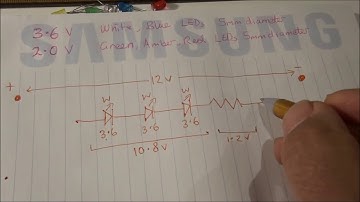 3.6 V White, Blue LEDs 5mm diameter
2.0 V Green, Amber, Red LEDs 5mm diameter
SAMSUNG
+ 12 V -
W W W
3.6 3.6 3.6
10.8 V 1.2 V